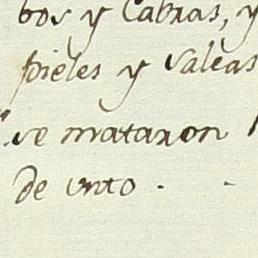 bos y Cabras, y
pieles y valeas
se mataron
de unto .